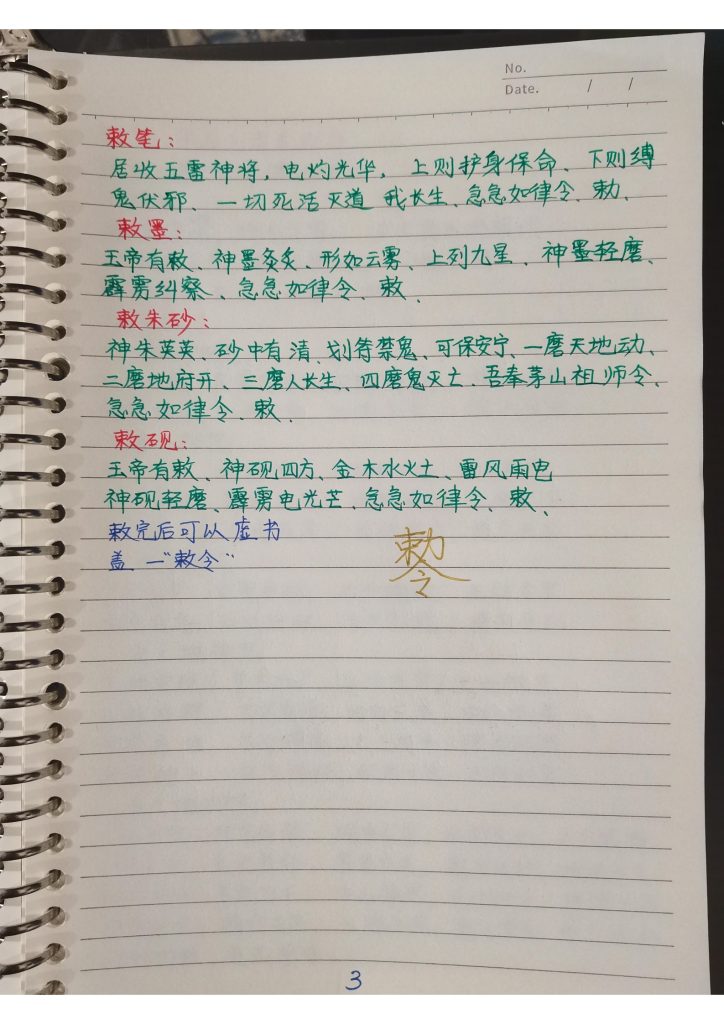 No.
Date. / /
敕笔：
居收五雷神将，电灼光华，上则护身保命、下则缚
鬼伏邪、一切死活灭道 我长生、急急如律令、勅、
敕墨：
玉帝有敕、神墨灸炙、形如云雾、上列九星、神墨轻磨、
霹雳纠察、急急如律令、敕、
敕朱砂：
神朱英英、砂中有清、划符禁鬼、可保安宁、一磨天地动、
二磨地府开、三磨人长生、四磨鬼灭亡、吾奉茅山祖师令、
急急如律令、敕、
敕砚：
玉帝有敕、神砚四方、金木水火土、雷风雨电
神砚轻磨、霹雳电光芒、急急如律令、敕、
敕完后可以虚书
盖一“敕令”
勅令
3